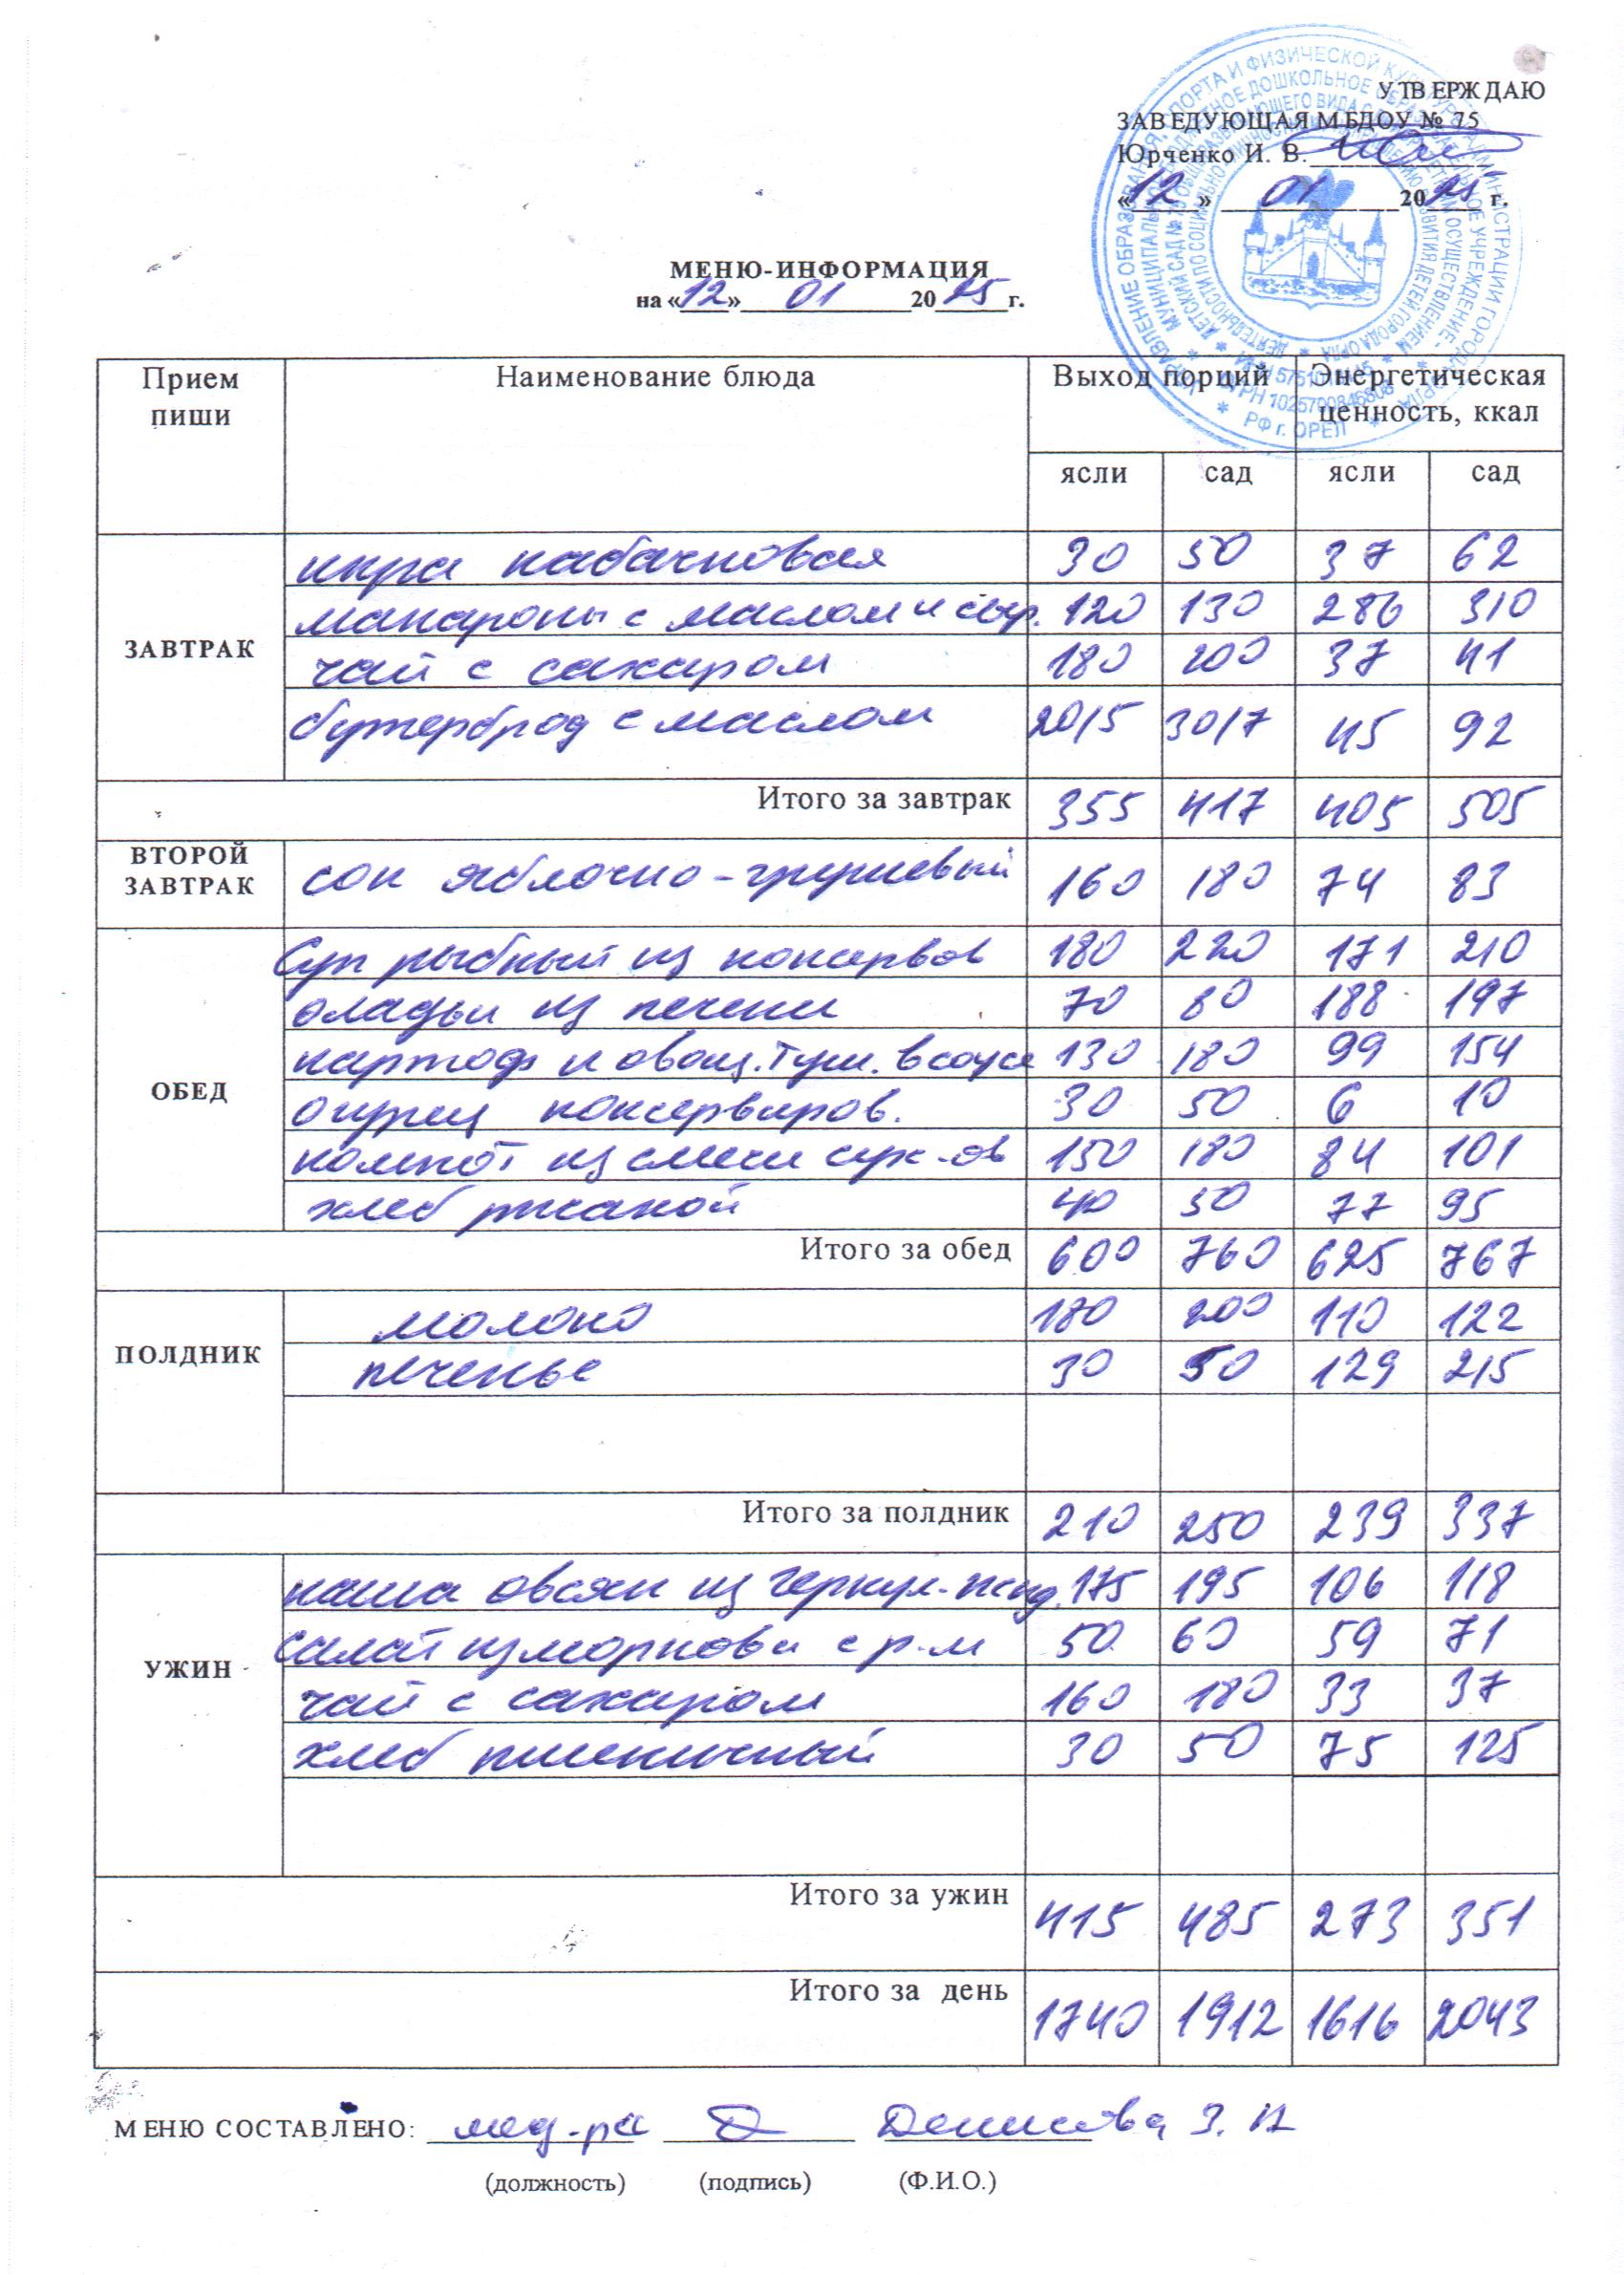 УТВЕРЖДАЮ
ЗАВЕДУЮЩАЯ МБДОУ № 75
Юрченко И. В.
«12» 01 2025 г.
МЕНЮ-ИНФОРМАЦИЯ
на «12» 01 2025 г.
Прием пиши Наименование блюда Выход порций Энергетическая ценность, ккал
ясли сад ясли сад
ЗАВТРАК
икра кабачковая 30 50 37 62
макароны с маслом и сыр. 120 130 286 310
чай с сахаром 180 200 37 41
бутерброд с маслом 20/5 30/7 45 92
Итого за завтрак 355 417 405 505
ВТОРОЙ ЗАВТРАК сок яблочно-грушевый 160 180 74 83
ОБЕД
Суп рыбный из консервов 180 220 171 210
оладьи из печени 70 80 188 197
картоф и овощ. туш. в соусе 130 180 99 154
огурец консервиров. 30 50 6 10
компот из смеси сух-ов 150 180 84 101
хлеб ржаной 40 50 77 95
Итого за обед 600 760 625 767
ПОЛДНИК
молоко 180 200 110 122
печенье 30 50 129 215
Итого за полдник 210 250 239 337
УЖИН
каша овсян из геркул-жид. 175 195 106 118
Салат из моркови с р.м 50 60 59 71
чай с сахаром 160 180 33 37
хлеб пшеничный 30 50 75 125
Итого за ужин 415 485 273 351
Итого за день 1740 1912 1616 2043
МЕНЮ СОСТАВЛЕНО: мед-ра Денисова З. Н
(должность) (подпись) (Ф.И.О.)
РФ г. ОРЕЛ